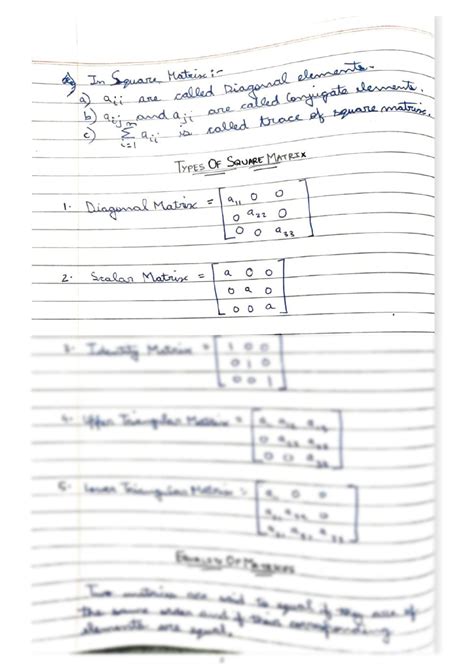 In Square Matrix :-
a) aii are called Diagonal elements.
b) aij and aji are called Conjugate elements.
c) m Σ i=1 aii is called trace of square matrix.
TYPES OF SQUARE MATRIX
1. Diagonal Matrix = [ a11 0 0
0 a22 0
0 0 a33 ]
2. Scalar Matrix = [ a 0 0
0 a 0
0 0 a ]
3. Identity Matrix = [ 1 0 0
0 1 0
0 0 1 ]
4. Upper Triangular Matrix =
0
0 0
5. Lower Triangular Matrix = 0 0
0
EQUALITY OF MATRICES
Two matrices are said to equal if they are of
the same order and if their corresponding
elements are equal.